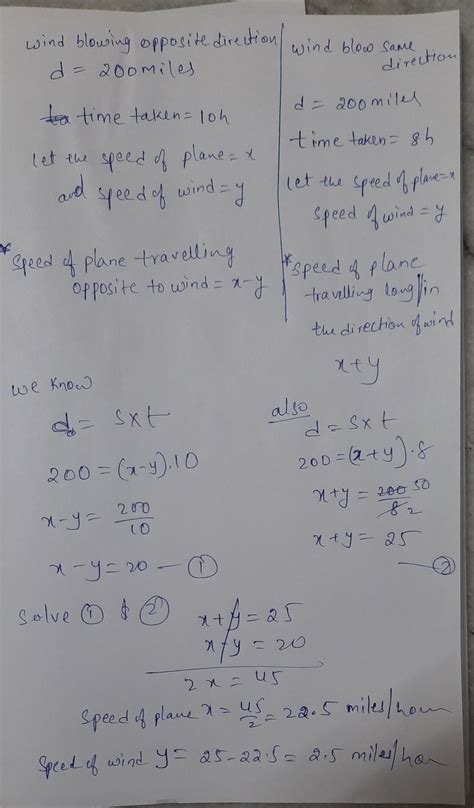 wind blowing opposite direction
d = 200 miles
time taken = 10h
let the speed of plane = x
and speed of wind = y
* speed of plane travelling
opposite to wind = x-y
wind blow same
direction
d = 200 miles
time taken = 8h
let the speed of plane = x
speed of wind = y
* speed of plane
travelling long/in
the direction of wind
x+y
we know
d = sxt
200 = (x-y).10
x-y = 200/10
x-y = 20 — ①
also
d = sxt
200 = (x+y).8
x+y = 200 50/8 2
x+y = 25
— ②
solve ① & ②
x+y = 25
x-y = 20
2x = 45
speed of plane x = 45/2 = 22.5 miles/hour
speed of wind y = 25-22.5 = 2.5 miles/hour